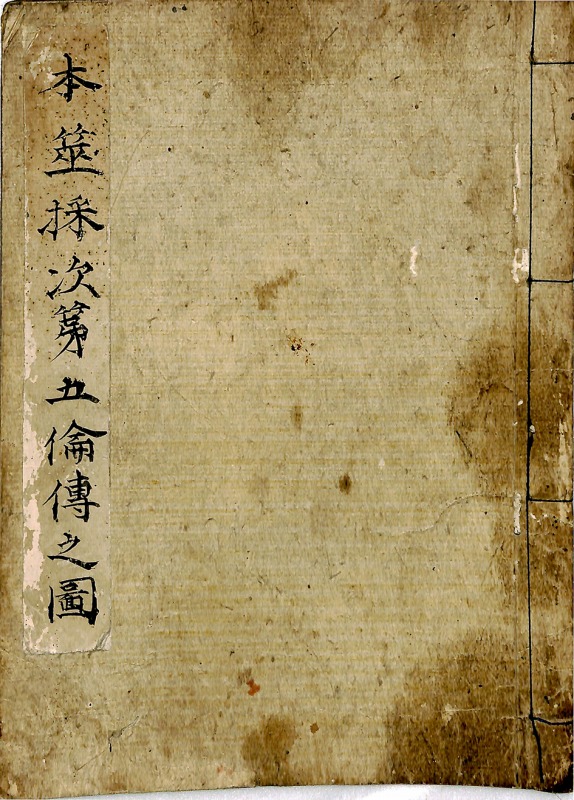 本筮採次第五倫傳之圖